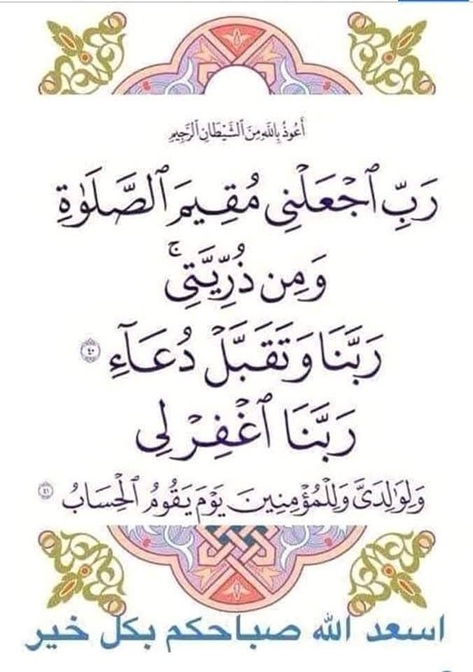 أَعُوذُ بِاللَّهِ مِنَ الشَّيْطَانِ الرَّجِيمِ
رَبِّ ٱجْعَلْنِى مُقِيمَ ٱلصَّلَوٰةِ
وَمِن ذُرِّيَّتِىۚ
رَبَّنَا وَتَقَبَّلْ دُعَآءِ ٤٠
رَبَّنَا ٱغْفِرْ لِى
وَلِوَٰلِدَىَّ وَلِلْمُؤْمِنِينَ يَوْمَ يَقُومُ ٱلْحِسَابُ ٤١
اسعد الله صباحكم بكل خير